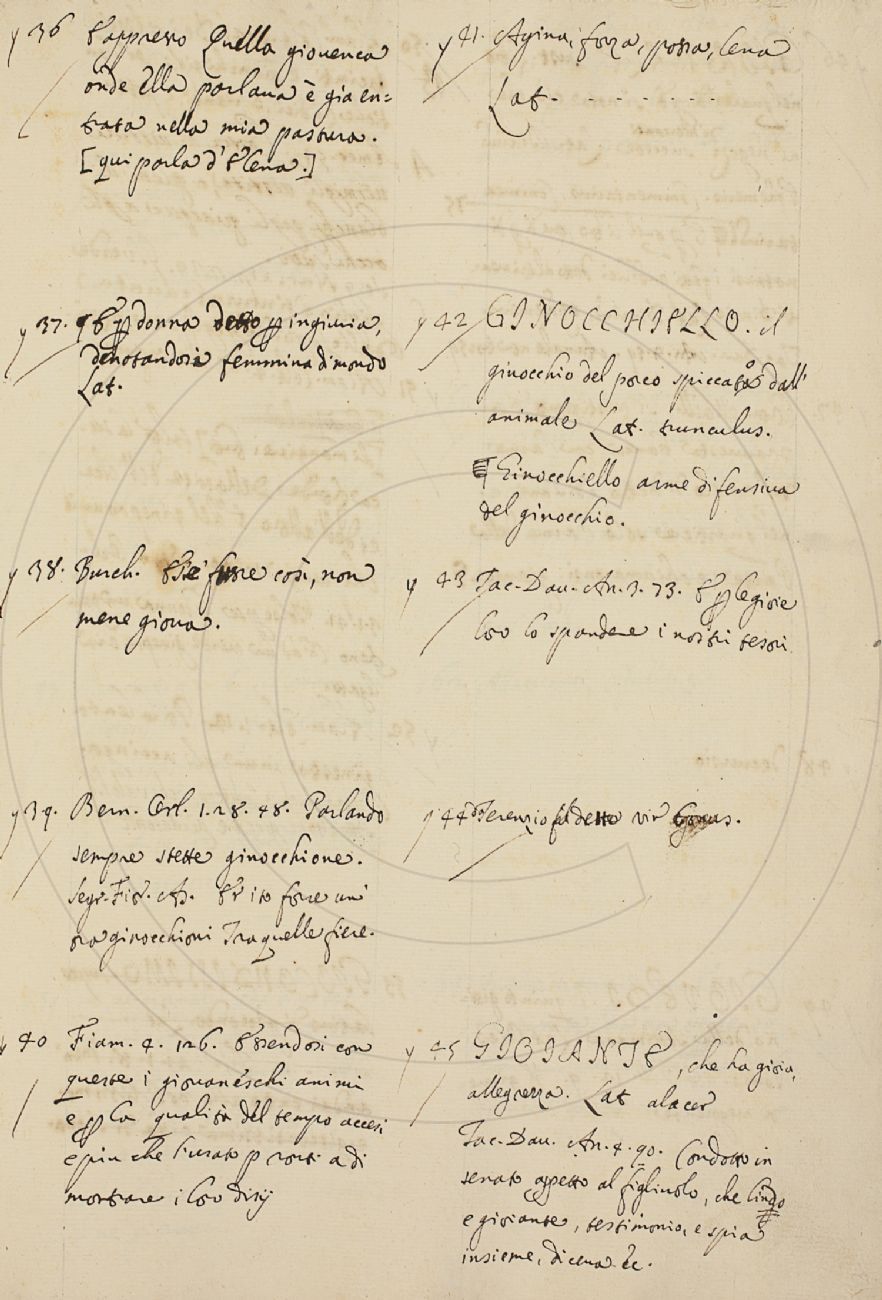 36 E appresso Quella giovenca
onde Ella parlava è gia en=
trata nella mia pastura.
[qui parla d'Elena.]
37. donna detto ingiuria,
denotandosi femmina di mondo
Lat.
38. Burch. E se fusse così, non
mene giova.
39. Bern. Orl. 1. 28. 48. Parlando
sempre stette ginocchione.
Segr. Fior. As. Er ito forse un'
ora ginocchioni Tra quelle fiere.
40 Fiam. 4. 126. Essendosi con
queste i giovaneschi animi
e la qualità del tempo accesi
e piu che l'usato pronti a di
mostrare i loro disij
41. Agina, forza, possa, lena
Lat. - - - - - - - -
42 GINOCCHIELLO. il
ginocchio del porco spiccato dall'
animale Lat. trunculus.
Ginocchiello arme difensiva
del ginocchio.
43 Tac. Dav. An. 3. 73. E le gioie
loro lo spandere i nostri tesori
44 Terenzio detto vir bonus.
45 GIOIANTE, che ha gioia,
allegrezza. Lat alacer
Tac. Dav. An. 4. 90. Condotto in
senato appetto al figliuolo, che lindo
e gioiante, testimonio, e spia
insieme, diceva &c.